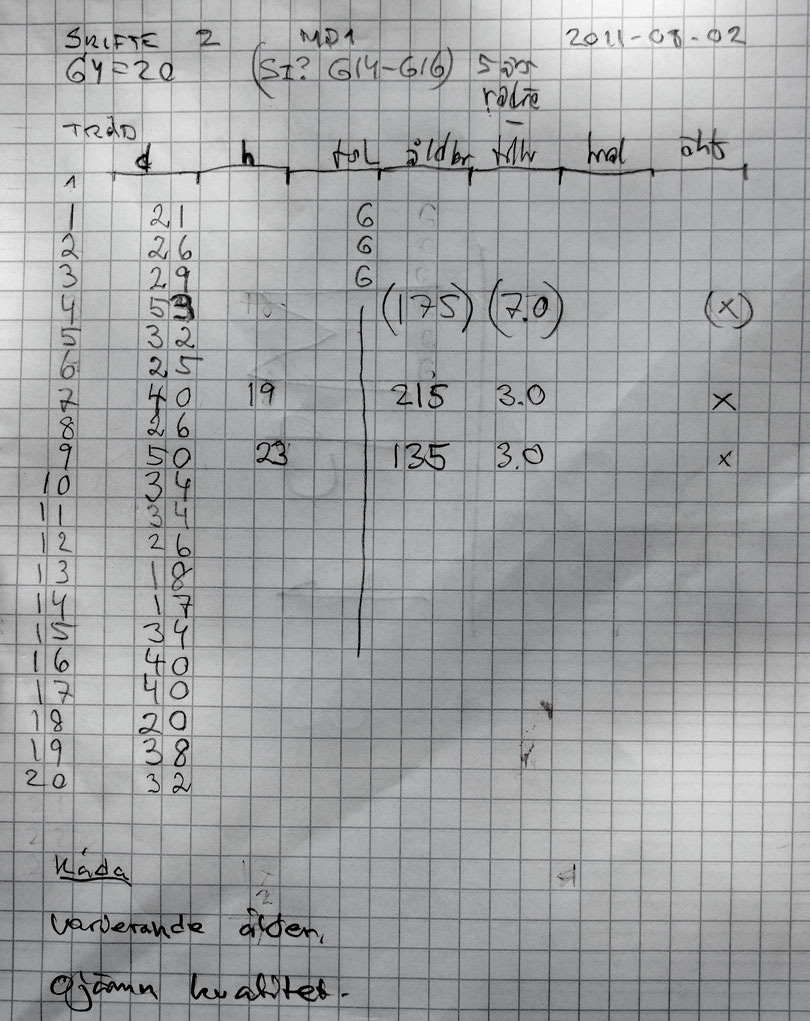 SKIFTE 2 MD1 2011-08-02
GY=20 (SI? G14-G16) 5 års
radie
TRÄD
d h tsl åldbr tillv kval öht
1
1 21 6
2 26 6
3 29 6
4 53 (175) (7.0) (x)
5 32
6 25
7 40 19 215 3.0 x
8 26
9 50 23 135 3.0 x
10 34
11 34
12 26
13 18
14 17
15 34
16 40
17 40
18 20
19 38
20 32
Kåda
varierande ålder,
ojämn kvalitet.